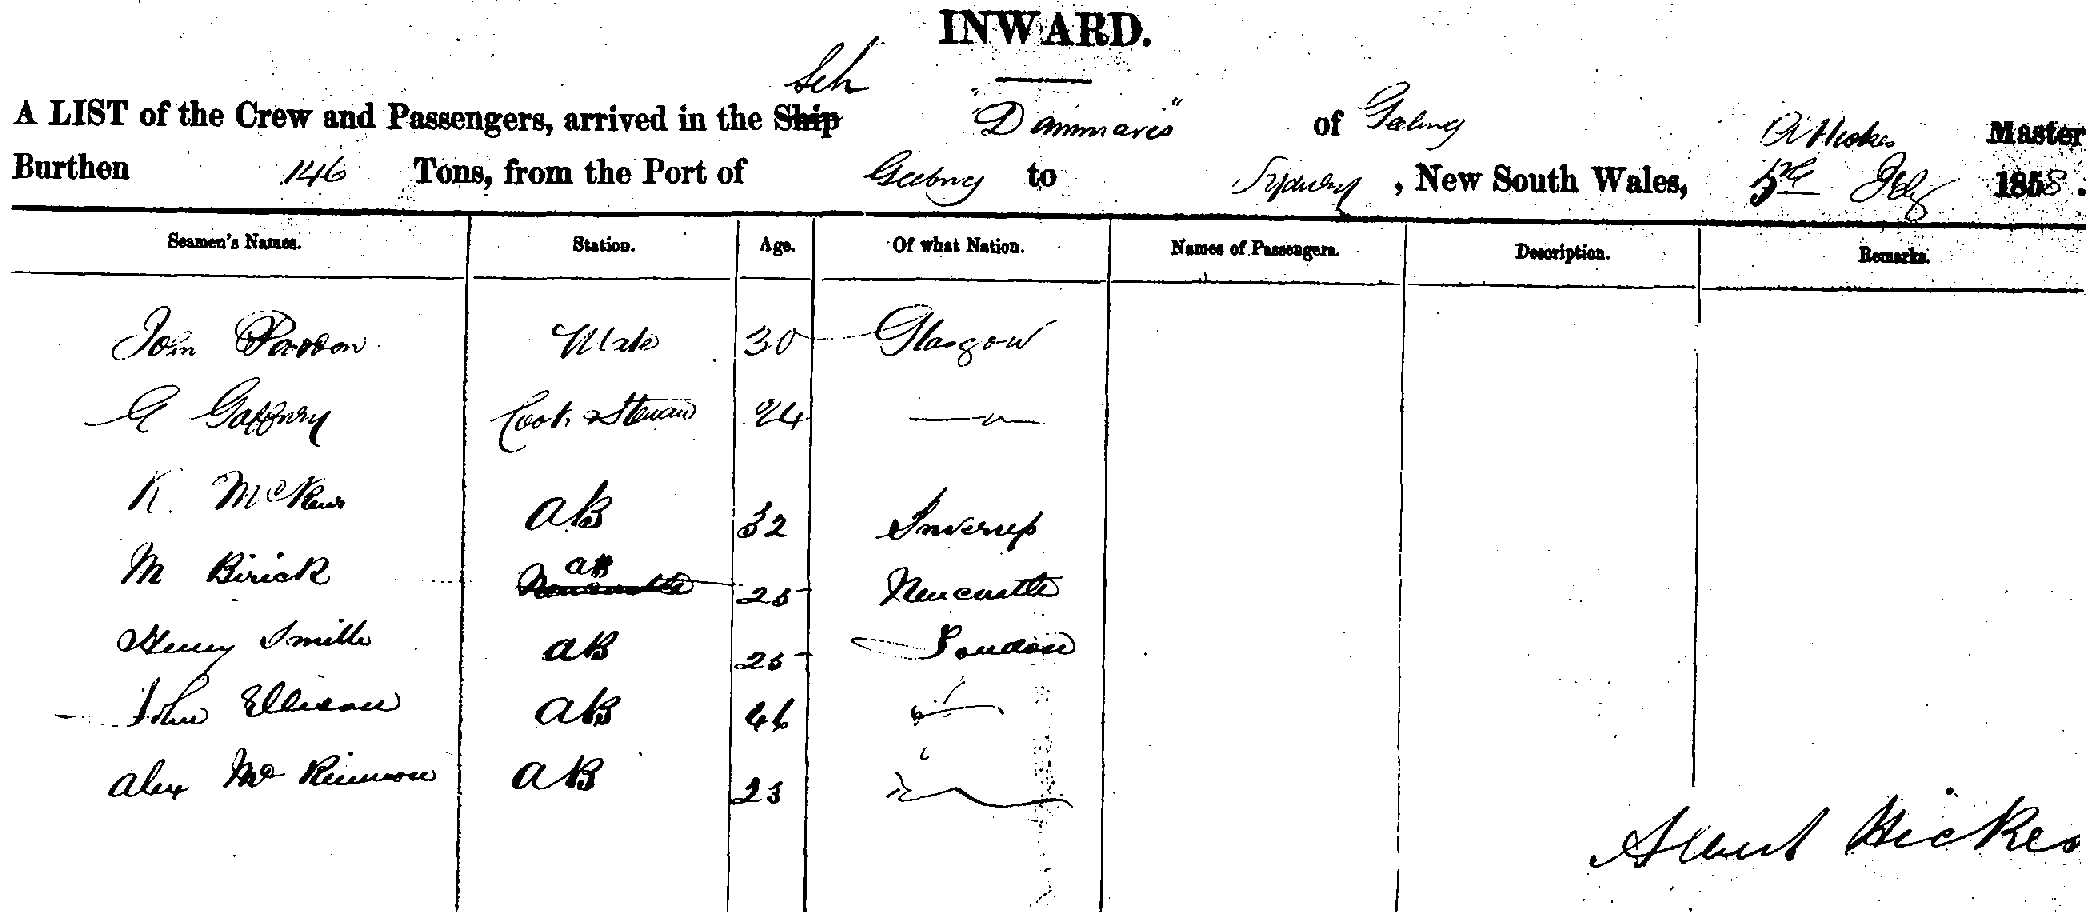 INWARD.
Sch
A LIST of the Crew and Passengers, arrived in the Ship "Dammaris" of Master
Burthen 146 Tons, from the Port of to Sydney, New South Wales, 5th 1858.
Seamen's Names. Station. Age. Of what Nation. Names of Passengers. Description. Remarks.
John Mate 30 Glasgow
G Gaffney Cook & Steward 24 —"—
K. AB 32 Inverness
M Birick AB 25 Newcastle
Henry Smith AB 25 London
John Ellison AB 46
Alex Mc Kinnon AB 25
Albert Hickes